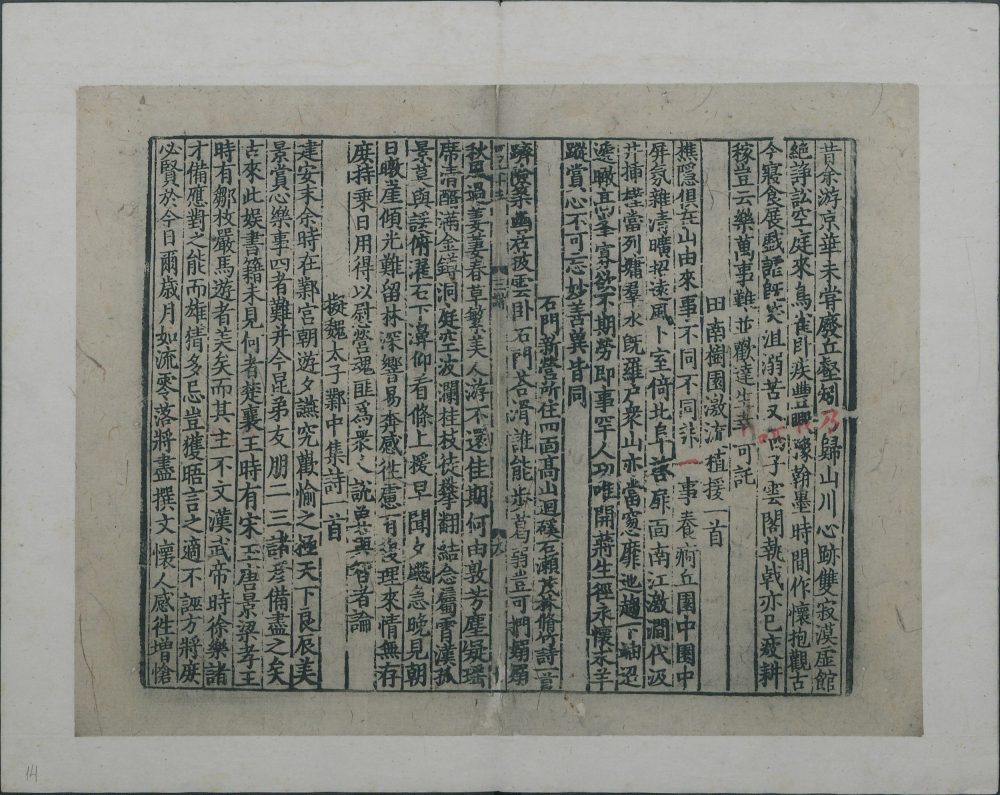 昔余游京華未嘗廢丘壑矧乃歸山川心跡雙寂漠虛館
絕諍訟空庭來鳥雀卧疾豐暇豫翰墨時間作懷抱觀古
今寢食展戲謔旣笑沮溺苦又哂子雲閣執戟亦已疲耕
稼豈云樂萬事難並歡達生幸可託
田南樹園激流植援一首
樵隱俱在山由來事不同不同非一事養痾丘園中園中
屏氛雜清曠招遠風卜室倚北阜啓扉面南江激澗代汲
井插槿當列墉羣木旣羅戶衆山亦當窓靡迤趨下岫迢
遞瞰高峯寡欲不期勞即事罕人功唯開蔣生徑永懷求羊
蹤賞心不可忘妙善冀皆同
石門新營所住四面高山迴磎石瀨茂林脩竹詩一首
躋險築幽居披雲卧石門苔滑誰能步葛弱豈可捫嫋嫋
三謝
秋風過萋萋春草繁美人游不還佳期何由敦芳塵凝瑤
席清醑滿金罇洞庭空波瀾桂枝徒攀翻結念屬霄漢孤
景莫與諼俯濯石下潭仰看條上猨早聞夕飈急晚見朝
日暾崖傾光難留林深響易奔感往慮有復理來情無存
庶持乘日用得以慰營魂匪爲衆人說冀與智者論
擬魏太子鄴中集詩 首
建安末余時在鄴宮朝遊夕讌究歡愉之極天下良辰美
景賞心樂事四者難并今昆弟友朋二三諸彥備盡之矣
古來此娛書籍未見何者楚襄王時有宋玉唐景梁孝王
時有鄒枚嚴馬遊者美矣而其主不文漢武帝時徐樂諸
才備應對之能而雄猜多忌豈獲晤言之適不誣方將庶
必賢於今日爾歲月如流零落將盡撰文懷人感往增愴
14